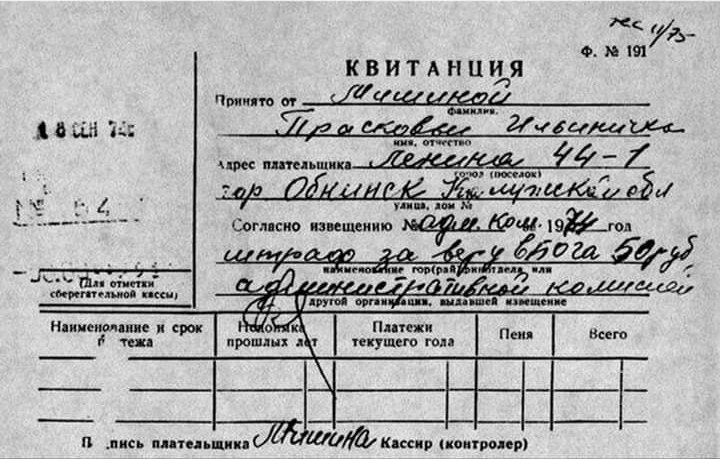 11/75
Ф. № 191
КВИТАНЦИЯ
Принято от Мишиной
фамилия,
Прасковьи Ильинична
имя, отчество
Адрес плательщика Ленина 44-1
город (поселок)
гор Обнинск Калужской обл
улица, дом №
Согласно извещению № адм. ком. 1974 год
штраф за веру в Бога 50 руб
наименование гор(рай)финотдела, или
административной комисией
другой организации, выдавшей извещение
18 СЕН 74
№ 64
(Для отметки
сберегательной кассы)
Наименование и срок
п тежа
Недоимка
прошлых лет
Платежи
текущего года
Пеня
Всего
П пись плательщика Мишина Кассир (контролер)